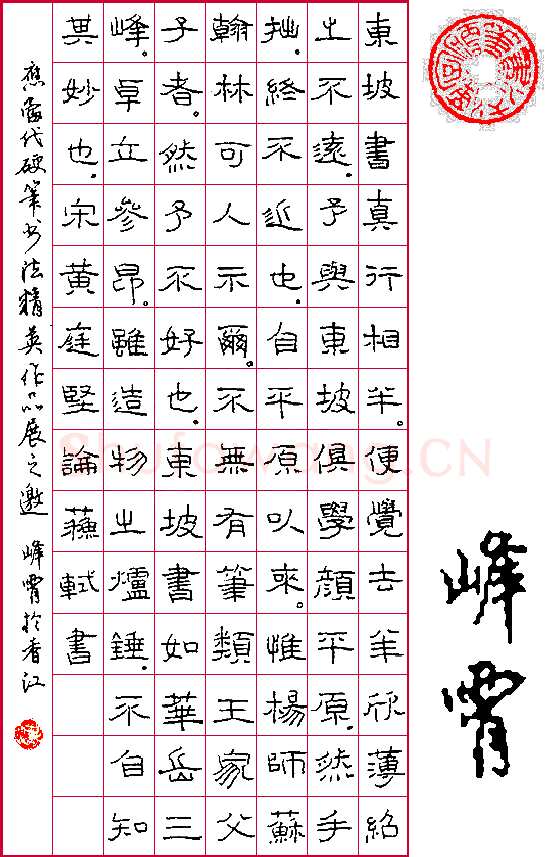 東坡書真行相半。便覺去羊欣薄紹
之不遠。予與東坡俱學顏平原。然手
拙。終不近也。自平原以來。惟楊師蘇
翰林可人示爾。不無有筆類王家父
子者。然予不好也。東坡書如華岳三
峰。卓立參昂。雖造物之爐錘。不自知
其妙也。宋黃庭堅論蘇軾書
應當代硬筆书法精英作品展之邀 峰霄於香江
峰霄
Shufawang.CN